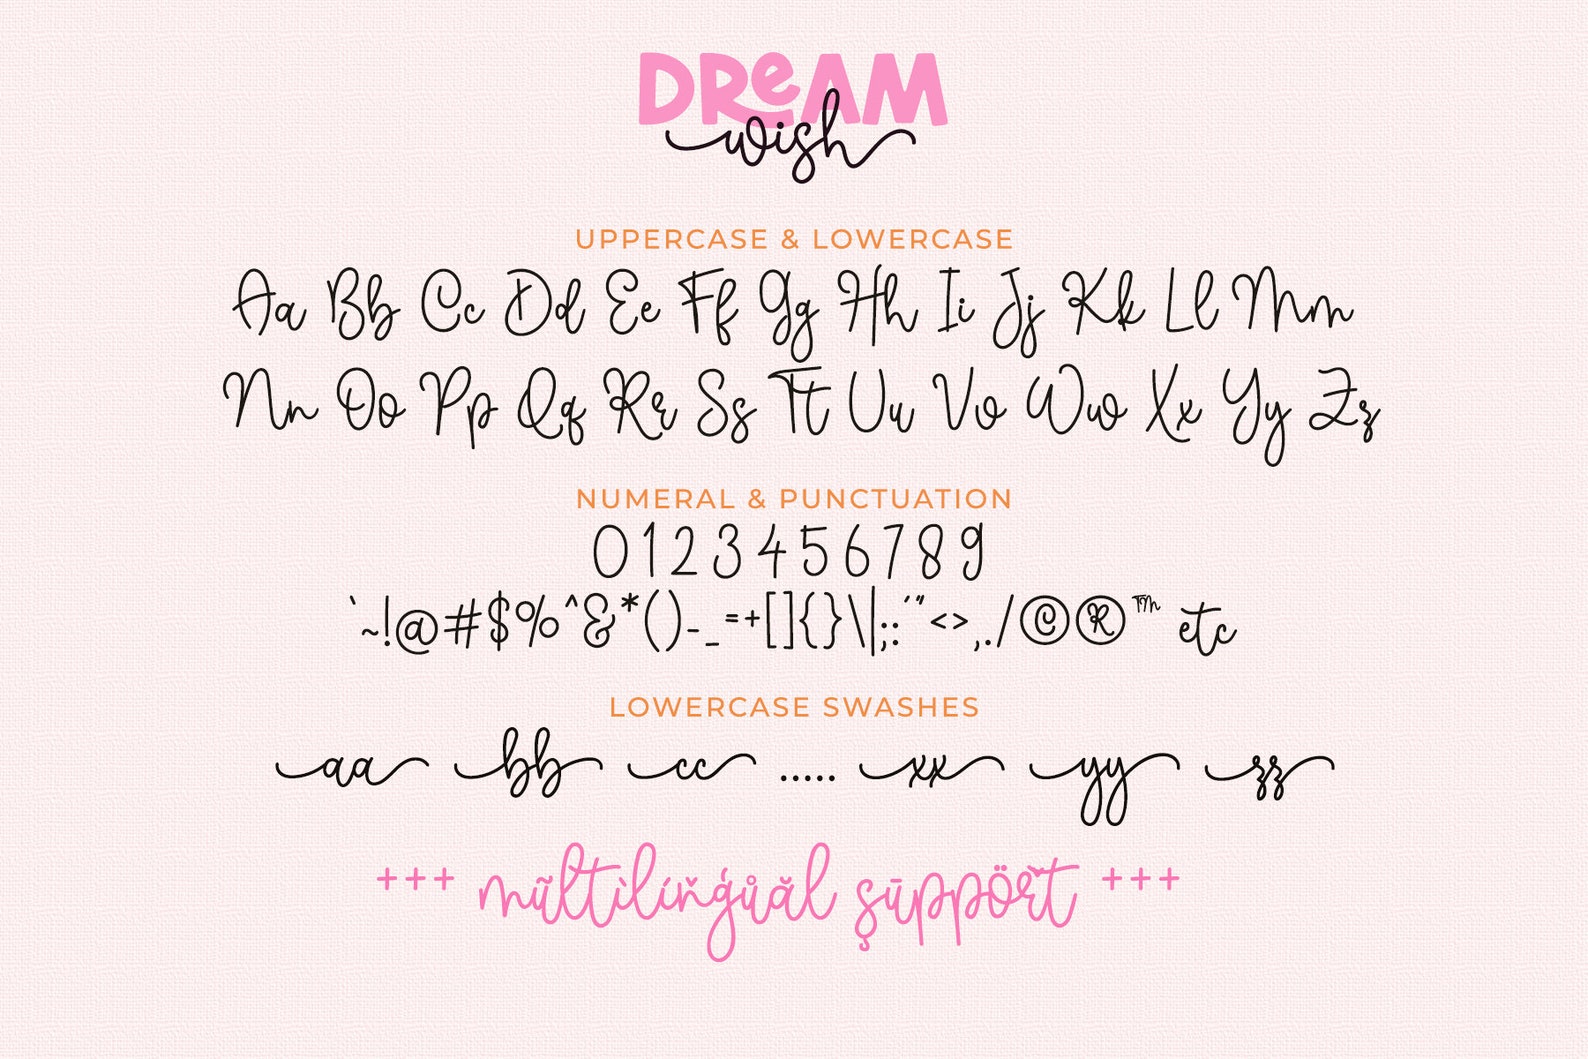 DReAM
wish
UPPERCASE & LOWERCASE
Aa Bb Cc Dd Ee Ff Gg Hh Ii Jj Kk Ll Mm
Nn Oo Pp Qq Rr Ss Tt Uu Vv Ww Xx Yy Zz
NUMERAL & PUNCTUATION
0 1 2 3 4 5 6 7 8 9
`~!@#$%^&*()-_=+[]{}\|;:'"<>,./©®™ etc
LOWERCASE SWASHES
aa bb cc ..... xx yy zz
+++ mũltìlíňģůăl şūppöřt +++